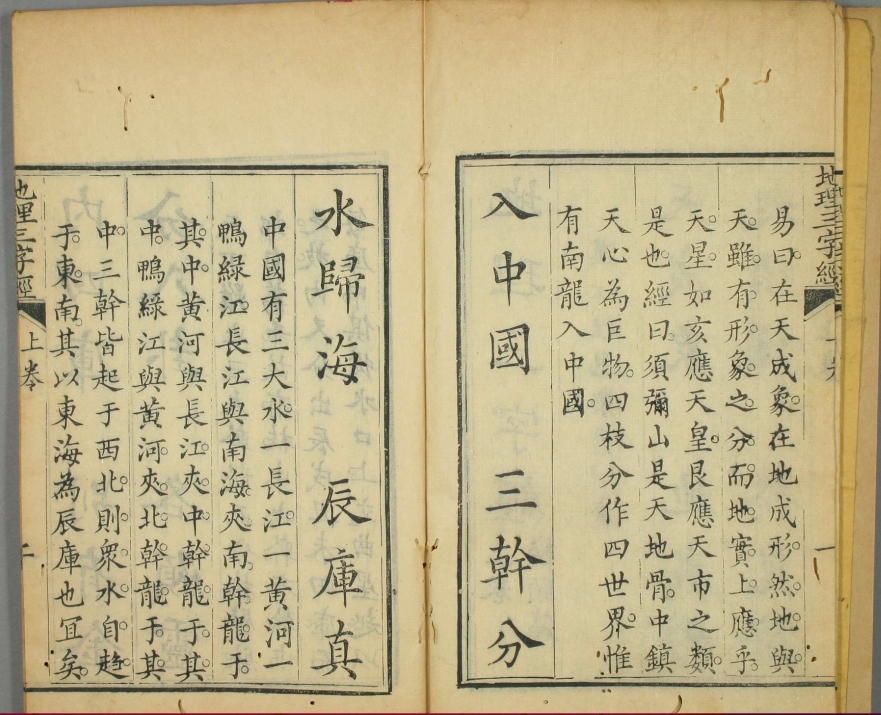 地理三字經
一
易曰在天成象。在地成形。然地與
天。雖有形象之分。而地實上應乎
天星。如亥應天皇。艮應天市之類。
是也。經曰。須彌山是天地骨。中鎮
天心為巨物。四枝分作四世界。惟
有南龍入中國。
入中國 三幹分
水歸海 辰庫真
中國有三大水。一長江一黃河一
鴨綠江。長江與南海。夾南幹龍于
其中。黃河與長江。夾中幹龍于其
中。鴨綠江與黃河。夾北幹龍于其
中。三幹皆起于西北。則眾水自趋
于東南。其以東海為辰庫也宜矣。
地理三字經
上卷
二